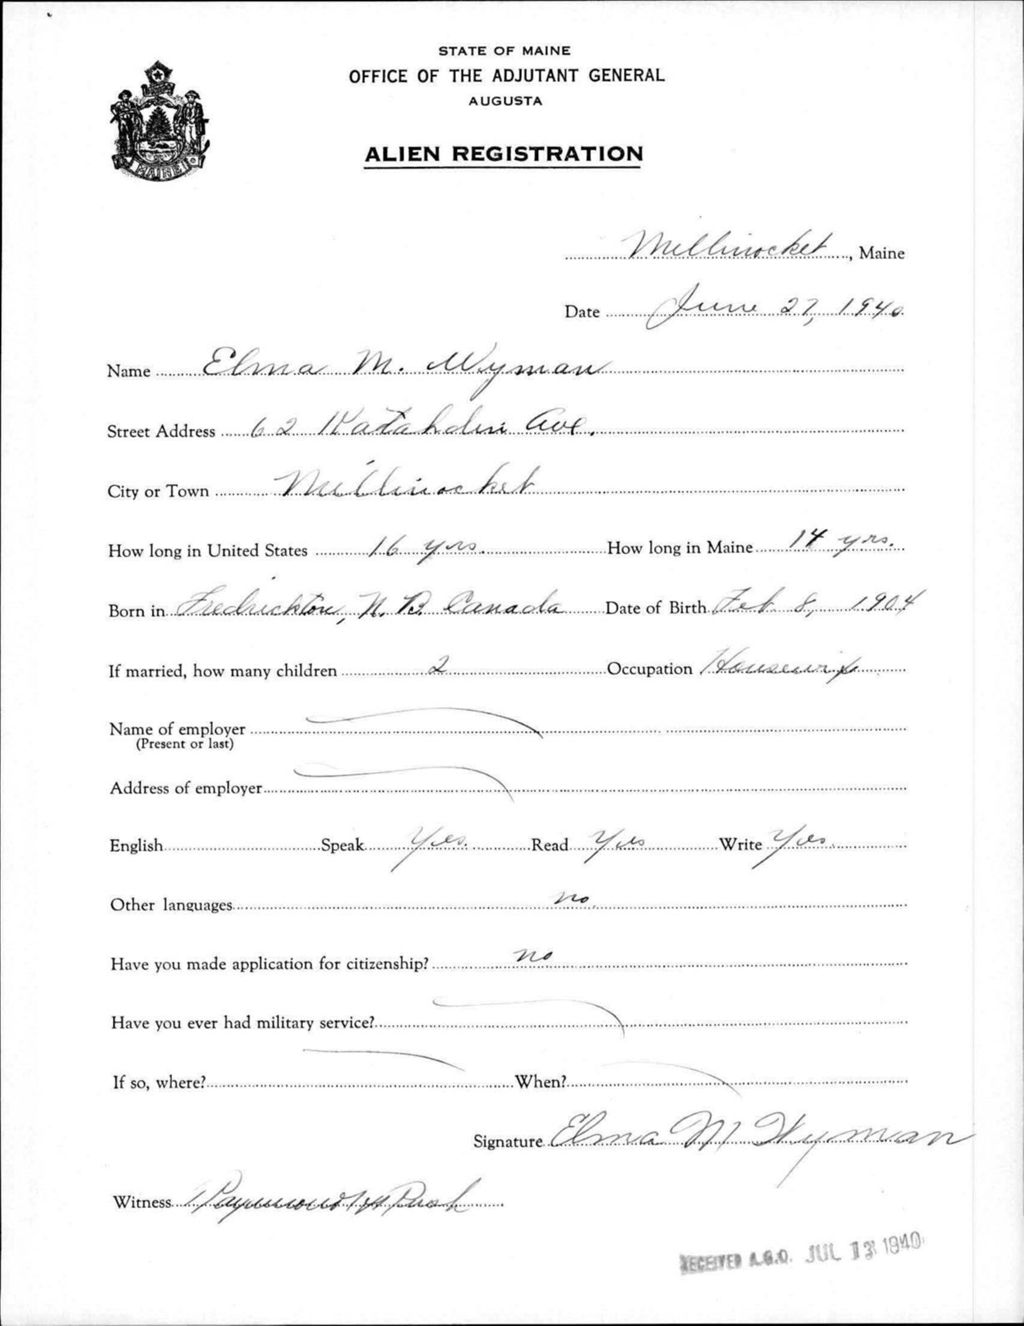 STATE OF MAINE
OFFICE OF THE ADJUTANT GENERAL
AUGUSTA
ALIEN REGISTRATION
MAINE
Millinocket, Maine
Date June 27, 1940
Name Elma M. Wyman
Street Address 62 Katahdin Ave.
City or Town Millinocket
How long in United States 16 yrs. How long in Maine 14 yrs.
Born in Fredrickton, N. B. Canada Date of Birth Feb 8, 1904
If married, how many children 2 Occupation Housewife
Name of employer
(Present or last)
Address of employer
English Speak Yes. Read Yes Write Yes.
Other languages no.
Have you made application for citizenship? no
Have you ever had military service?
If so, where? When?
Signature Elma M Wyman
Witness Raymond Rush
RECEIVED A.G.O. JUL 13 1940